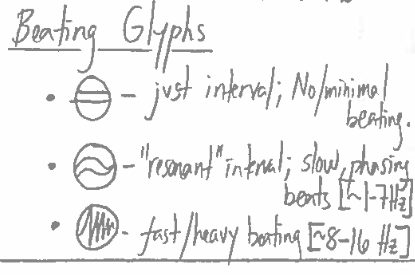 Beating Glyphs
• – just interval; No/minimal
beating.
• – "resonant" interval; slow, phasing
beats [~1-7Hz]
• – fast/heavy beating [~8-16 Hz]